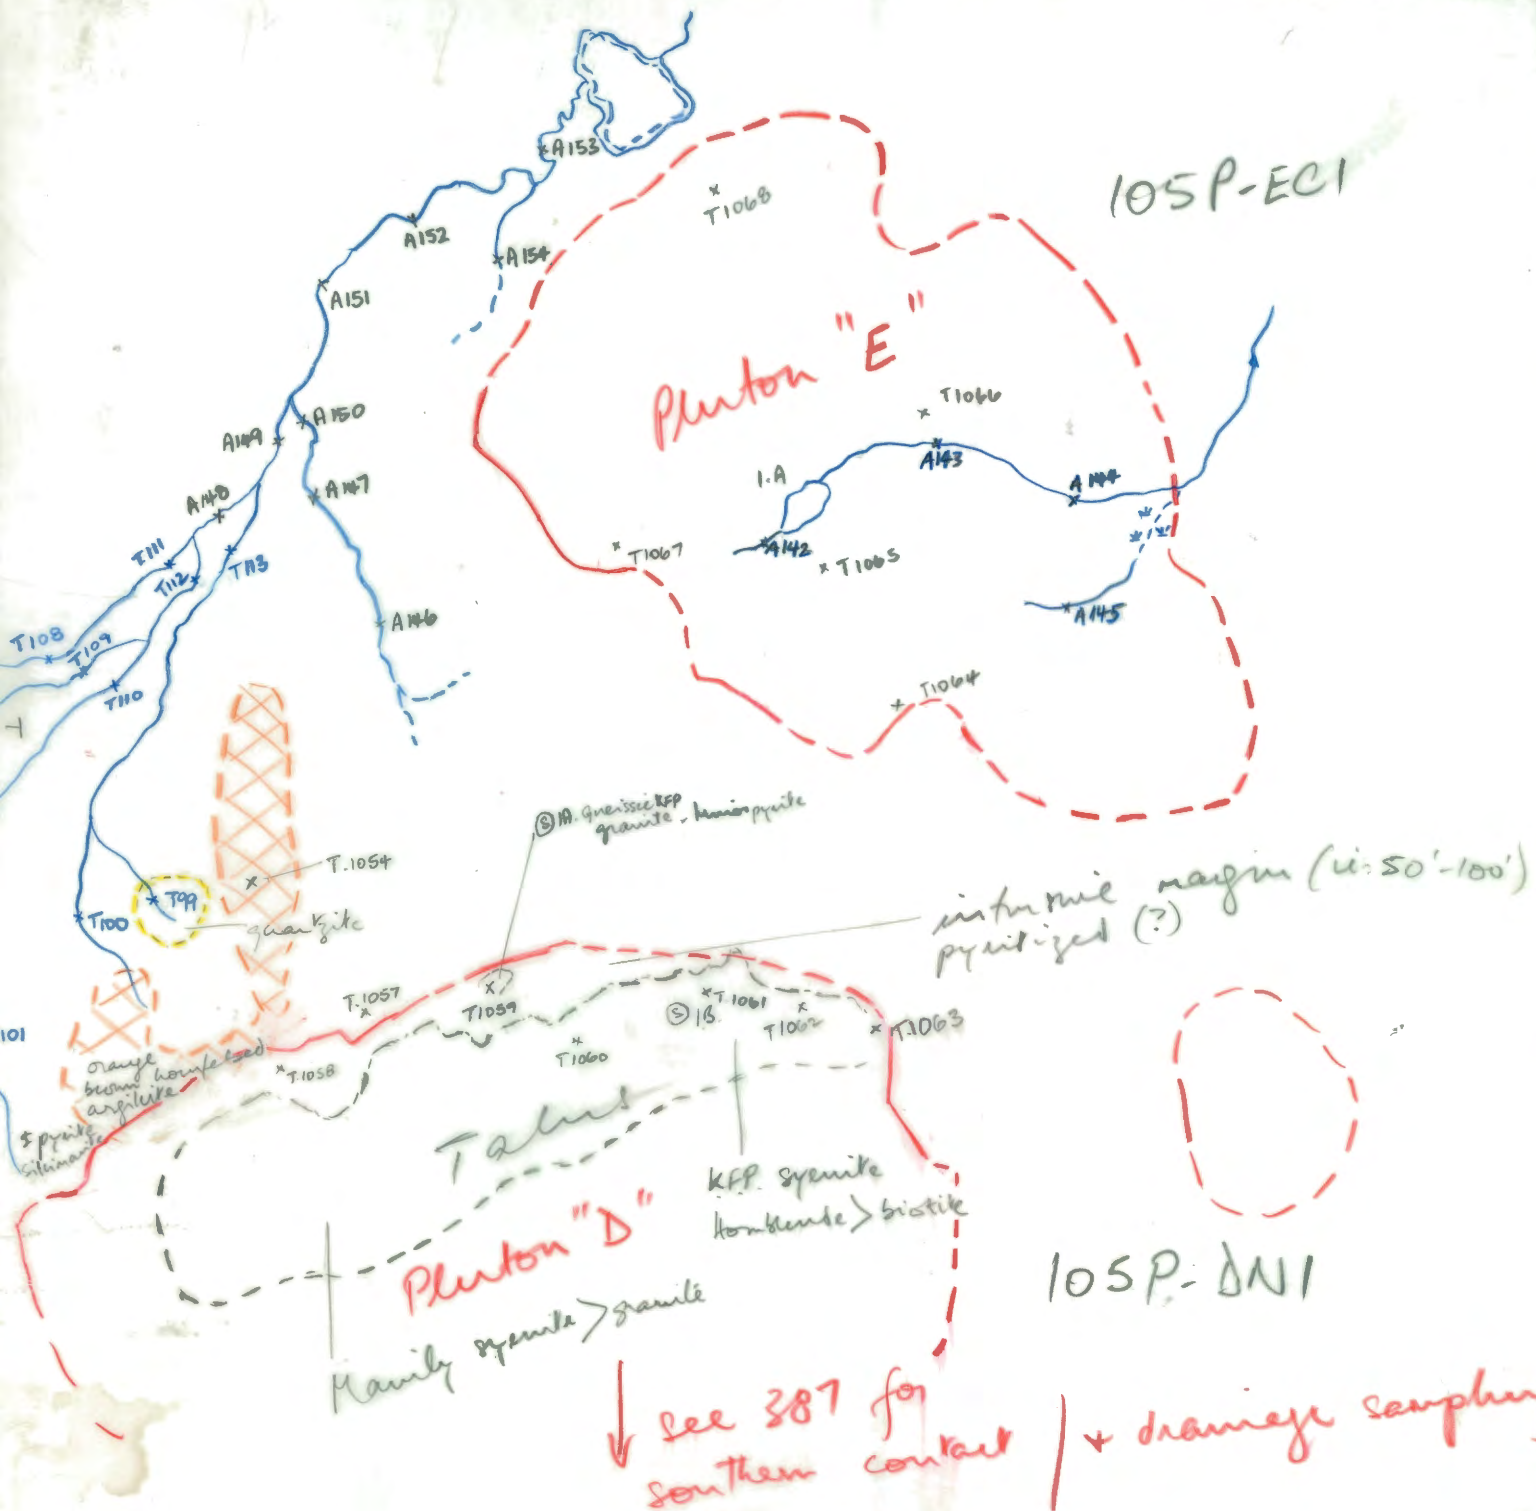 A153
105P-EC1
T1068
A152
A154
A151
Pluton "E"
T1066
A150
A149
A143
1.A
A144
A147
A148
T111
T113
T112
T1067
A142
T1065
A145
A146
T108
T109
T110
T1064
Ⓢ 1A. gneissic KFP
granite - minor pyrite
T.1054
T99
T100
quartzite
intrusive margin (ie: 50'-100')
pyritized (?)
T.1057
T1059
T1061
Ⓢ 1B
T1062
T.1063
101
T1060
orange
brown hornfelsed
argillite
T.1058
± pyrite
sillimanite
Talus
KFP. syenite
Hornblende > biotite
Pluton "D"
105P-DN1
Mainly syenite > granite
see 387 for
southern contact
+ drainage sampling